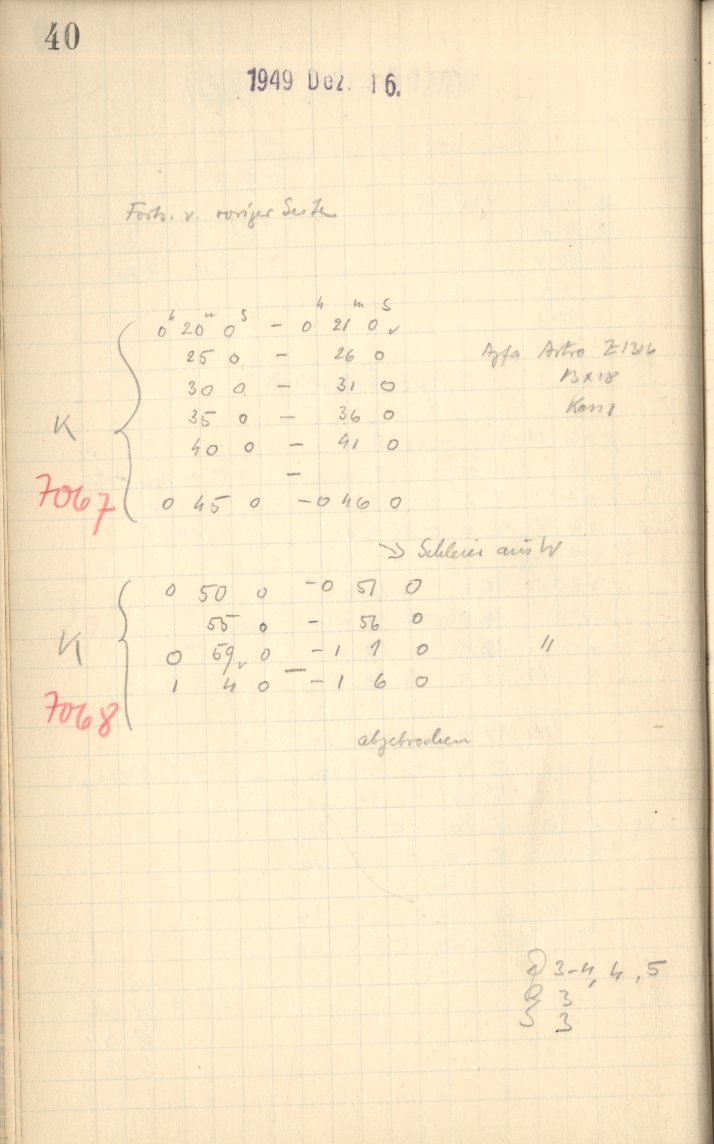 40
1949 Dez. 16.
Forts. v. voriger Seite
0h 20m 0s - 0h 21m 0s
25 0 - 26 0
Agfa Astro Z1316
30 0 - 31 0
13x18
35 0 - 36 0
Kass 1
K
40 0 - 41 0
-
7067
0 45 0 - 0 46 0
Schleier aus W
0 50 0 - 0 51 0
55 0 - 56 0
K
0 59 0 - 1 1 0 "
1 4 0 - 1 6 0
7068
abgebrochen
3-4, 4, 5
3
3